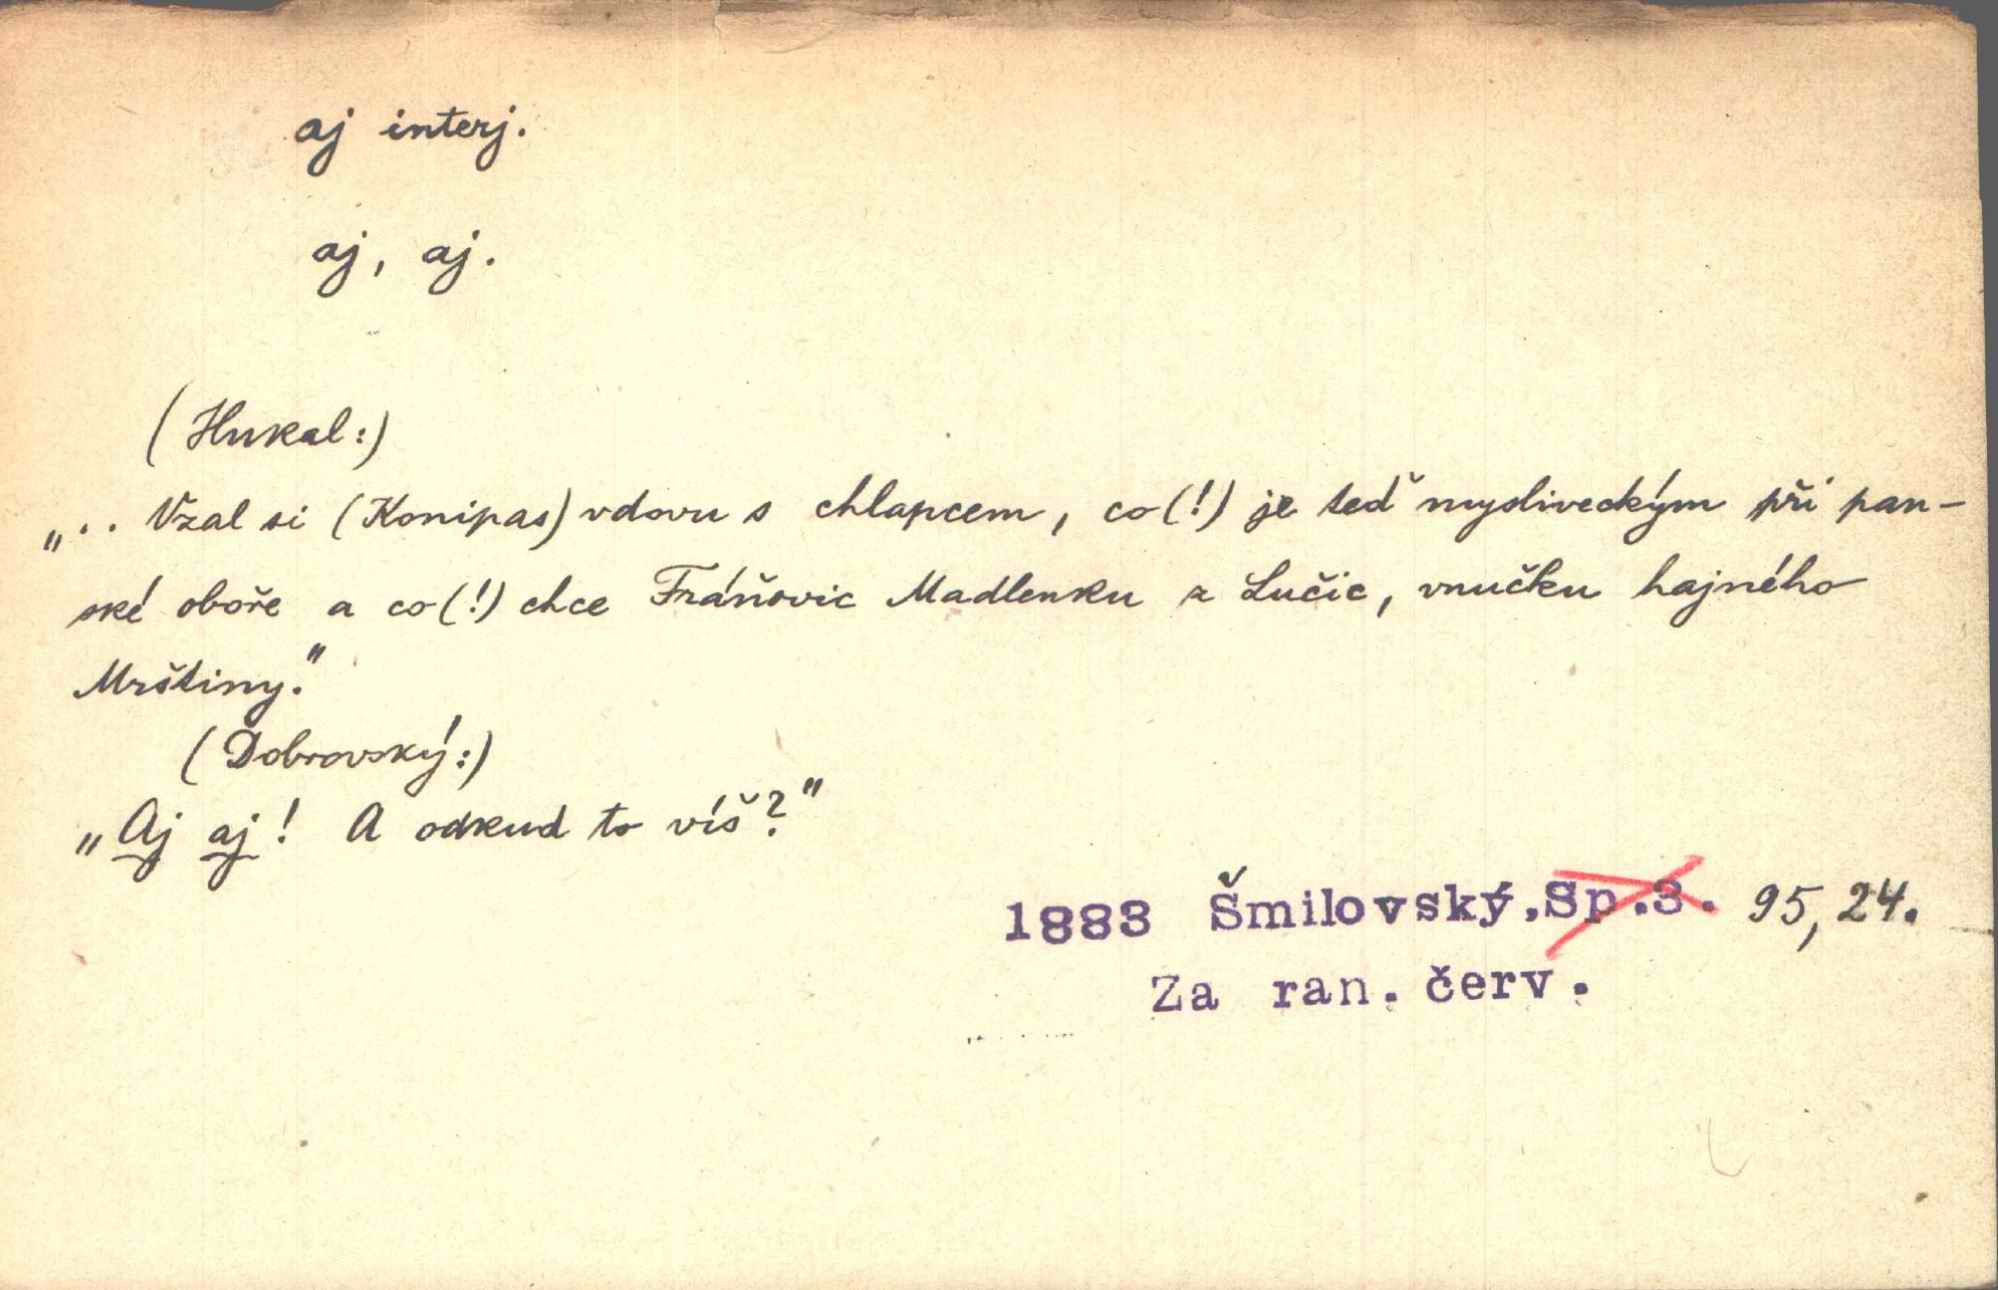 aj interj.
aj, aj.
(Hukal:)
„.. Vzal si (Konipas) vdovu s chlapcem, co(!) je teď mysliveckým při pan-
ské oboře a co(!) chce Fráňovic Madlenku z Lučic, vnučku hajného
Mrštiny."
(Dobrovský:)
„Aj aj! A odkud to víš?"
1883 Šmilovský.Sp.3. 95, 24.
Za ran. červ.